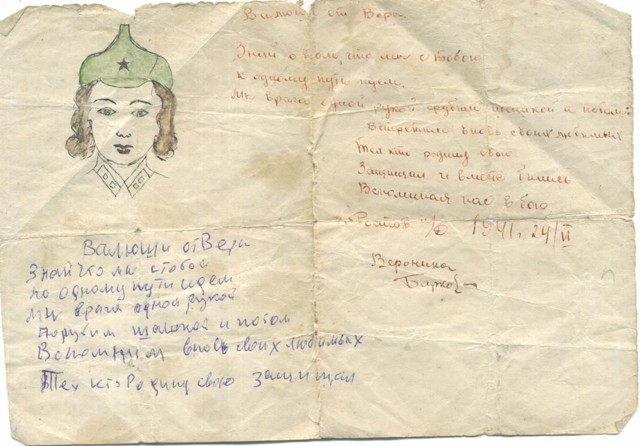 Валюши от Веры
Знай о Валю, что мы с тобою
к одному пути идем.
Мы врага одной рукой шашкой а потом
вновь своих любимых
Тех кто родину свою
Защищал и вместе
Вспоминая нас в бою
Ростов н/Д 1941г. 24/VI
Вероника
Валюши от Веры
Знай что мы с тобой
по одному пути идем
мы врага одной рукой
Порубим шашкой и потом
Вспомним вновь своих любимых
Тех кто Родину свою защищал